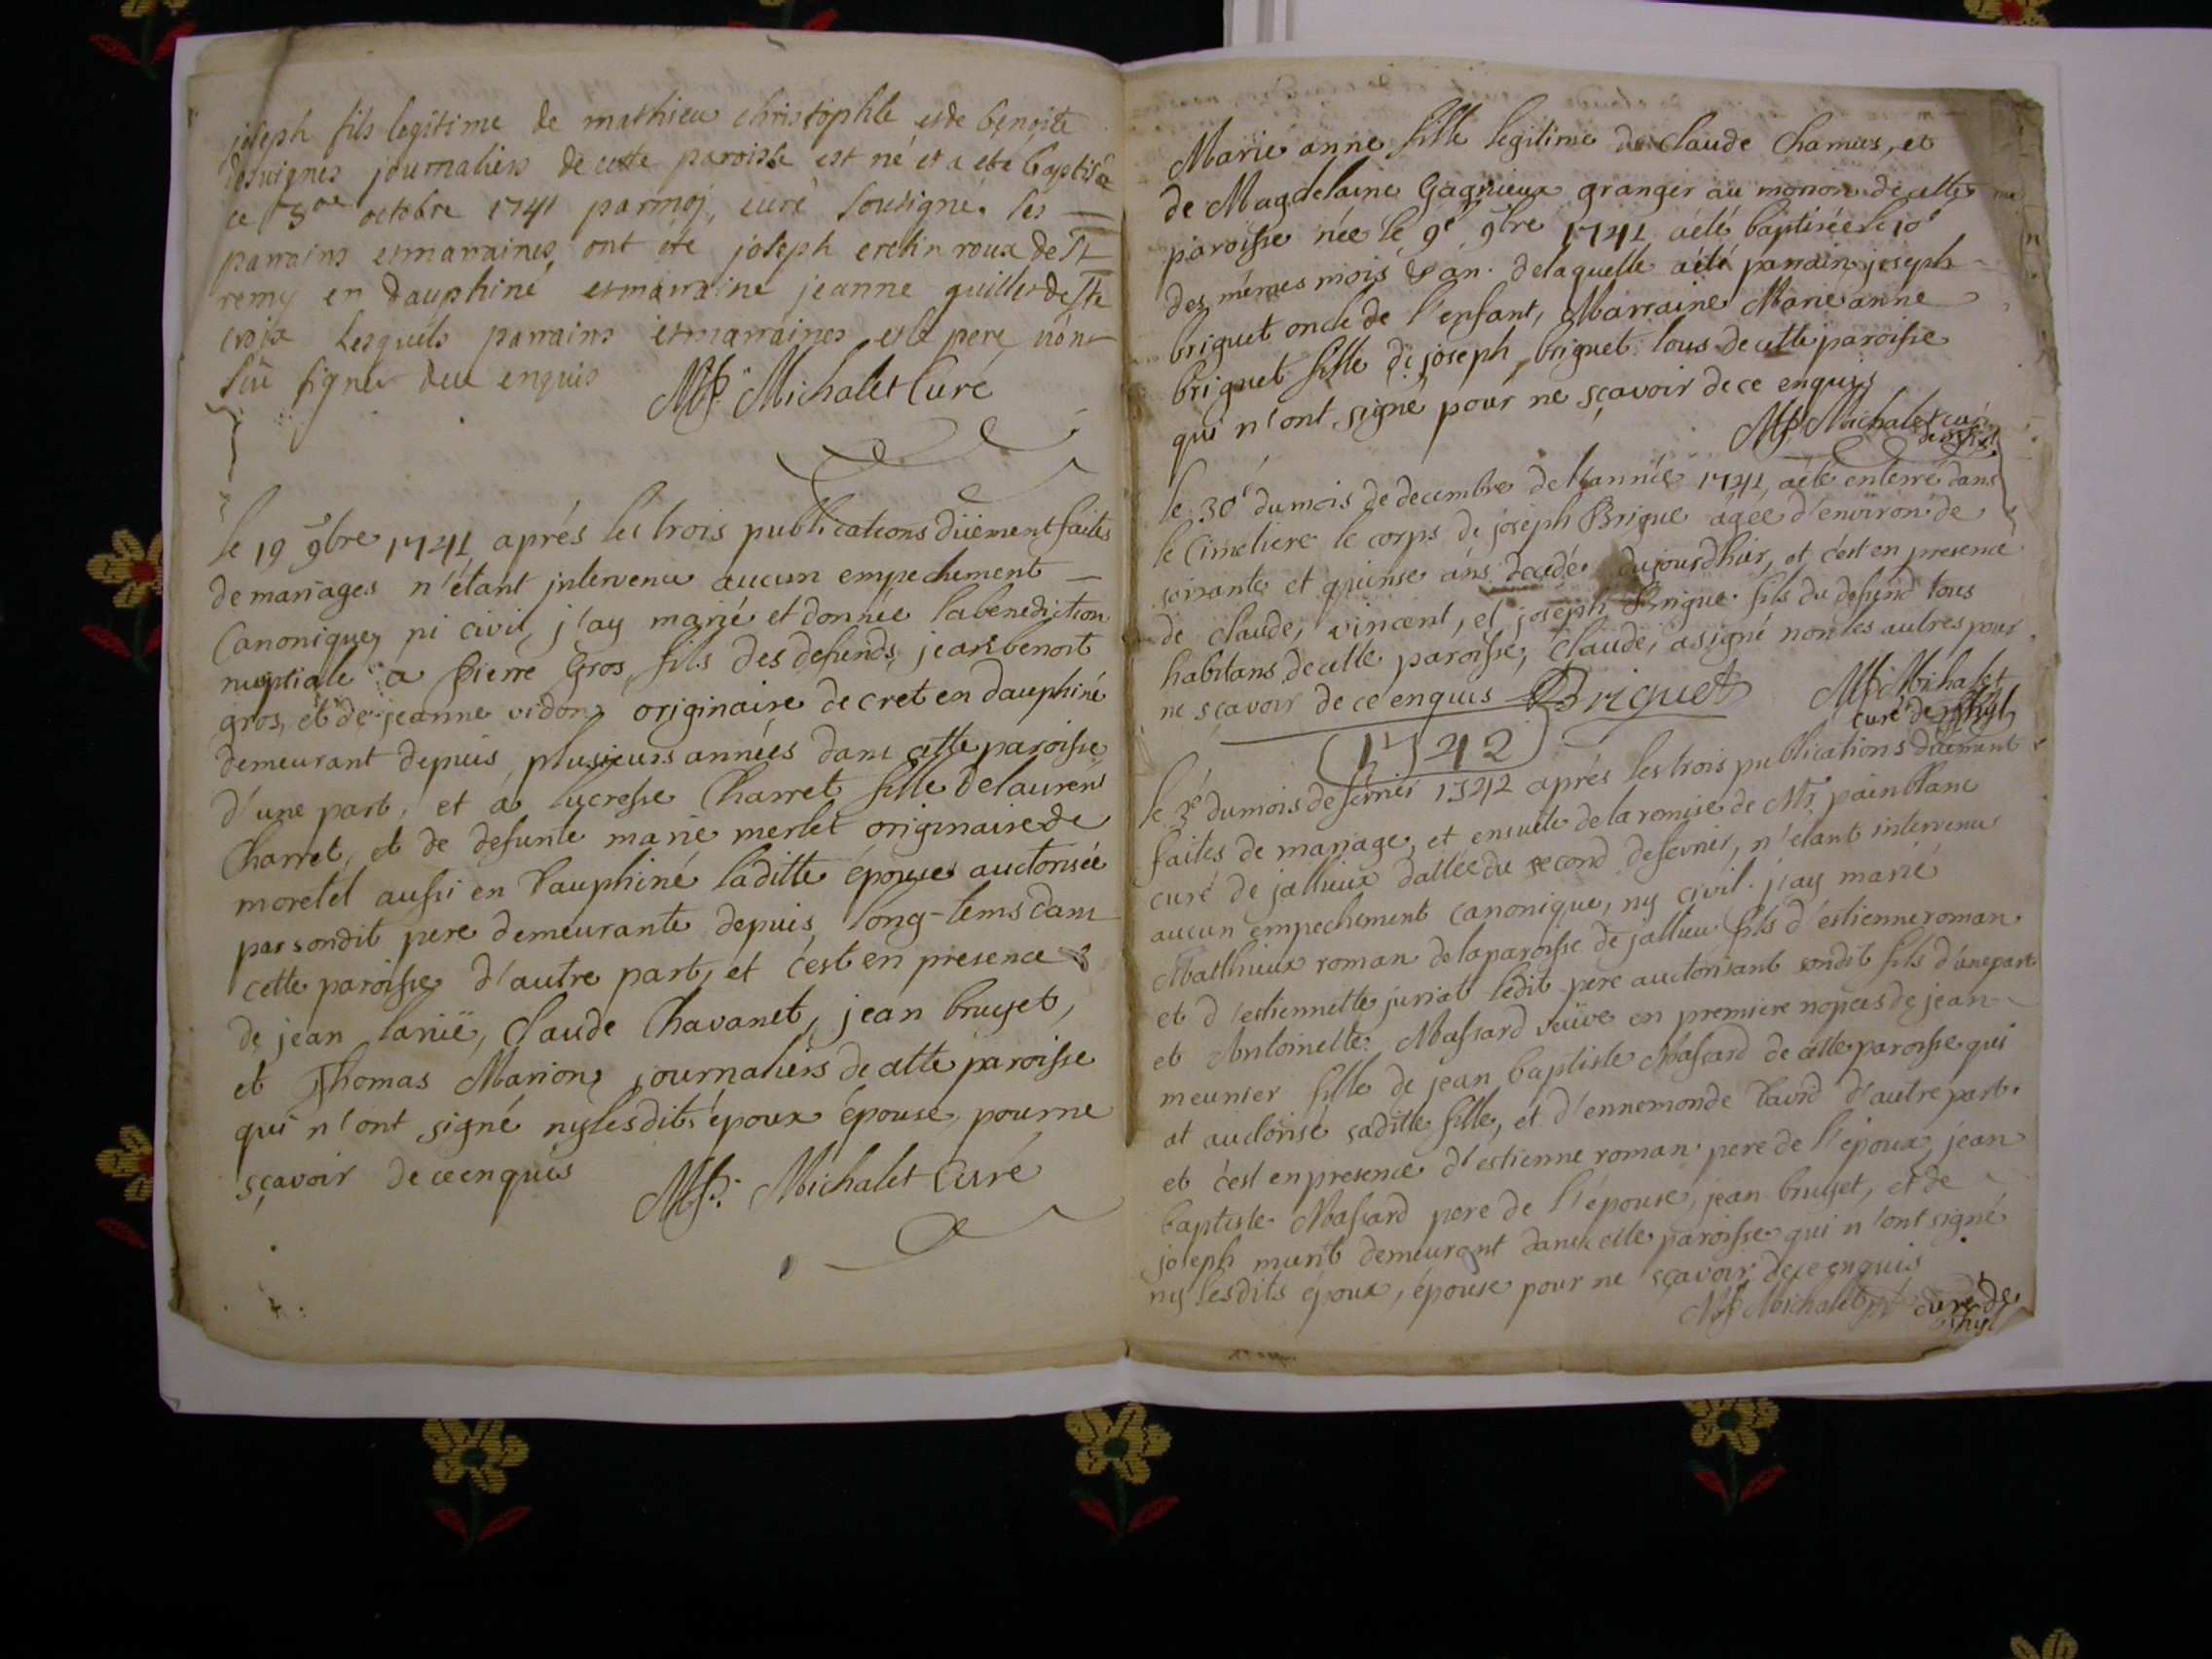 joseph fils legitime de mathieu christophle et de benoite
desvignes journaliers de cette paroisse est né et a eté baptisé
ce octobre 1741 par moy, curé sousigné. les
parrains et marraines ont été joseph roux de St
remy en dauphiné et marraine jeanne guillet de Ste
croix lesquels parrains et marraines et le pere n'ont
sçû signer deu enquis Michalet Curé
le 19 9bre 1741 aprés les trois publications düement faites
de mariages n'étant intervenu aucun empechement
Canonique, ni civil, j'ay marié et donnée la benediction
nuptiale à Pierre Gros, fils des defunds jean benoit
gros, et de jeanne vidon, originaire de cret en dauphiné
demeurant depuis plusieurs années dans cette paroisse
d'une part, et à lucresse Charret fille de laurens
Charret, et de defunte marie merlet originaire de
moretel aussi en Dauphiné laditte épouse auctorisée
par sondit pere demeurante depuis long-tems dans
cette paroisse d'autre part, et c'est en presence
de jean lariië, Claude Chavanet, jean bruyet,
et Thomas Marion, journaliers de cette paroisse
qui n'ont signé ny lesdits époux épouse pour ne
sçavoir de ce enquis Michalet Curé
Marie anne fille legitime de Claude Chamus, et
de Magdelaine Gagnieux granger au monon de cette
paroisse née le 9e 9bre 1741 a été baptisée le 10e
des mémes mois & an. de laquelle a été parrain joseph
briguet oncle de l'enfant, Marraine Marie anne
briguet fille de joseph briguet tous de cette paroisse
qui n'ont signé pour ne sçavoir de ce enquis
Michalet curé
le 30e du mois de decembre de l'année 1741, a été enterré dans
le Cimetiere le corps de joseph Brigue agée d'environ de
soixante et quinse ans decedé dujourdhuir, et c'est en presence
de claude, vincent, et joseph Brigue fils du defund tous
habitans de cette paroisse, Claude, a signé non les autres pour
ne sçavoir de ce enquis Briguet Michalet
curé de
1742
le 3e du mois de fevrier 1742 aprés les trois publications düement
faites de mariage, et ensuite de la remise de Mr. painblanc
curé de jallieux dattée du second de fevrier, n'etant intervenu
aucun empechement canonique, ny civil. j'ay marié
Matthieux roman de la paroisse de jallieu fils d'estienne roman
et d'estiennette juriat ledit pere auctorisant sondit fils d'une part
et Antoinette Massard veüve en premiere nopces de jean
meunier fille de jean baptiste Massard de cette paroisse qui
at auctorisé saditte fille, et d'ennemonde David d'autre part.
et c'est en presence d'estienne roman pere de l'époux, jean
baptiste Massard pere de l'épouse, jean bruyet, et de
joseph murit demeurant dans cette paroisse qui n'ont signé
ny lesdits époux, épouse pour ne sçavoir de ce enquis
Michalet curé de